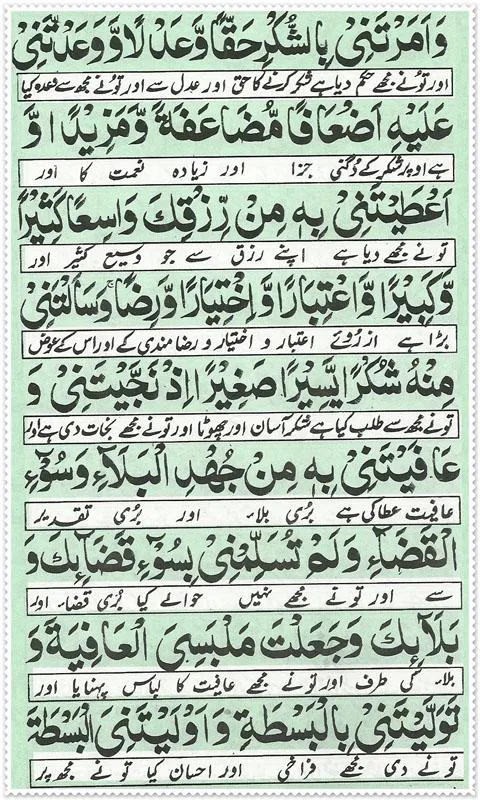 وَاَمَرْتَنِیْ بِالشُّكْرِ حَقًّا وَّعَدْلًا وَّوَعَدْتَّنِیْ
اور تو نے مجھے حکم دیا ہے شکر کرنے کا حق اور عدل سے اور تو نے مجھ سے وعدہ کیا
عَلَيْهِ اَضْعَافًا مُّضَاعَفَةً وَّمَزِيْدًا وَّ
ہے اوپر شکر کے دُگنی جزا اور زیادہ نعمت کا اور
اَعْطَيْتَنِیْ بِهٖ مِنْ رِّزْقِكَ وَاسِعًا كَثِيْرًا
تو نے مجھے دیا ہے اپنے رزق سے جو وسیع کثیر اور
وَّكَبِيْرًا وَّاعْتِبَارًا وَّاِخْتِيَارًا وَّرِضًا وَسَأَلْتَنِیْ
بڑا ہے ازرُوئے اعتبار و اختیار و رضا مندی کے اور اس کے عوض
مِنْهُ شُكْرًا يَّسِيْرًا صَغِيْرًا اِذْ نَجَّيْتَنِیْ وَ
تو نے مجھ سے طلب کیا ہے شکر آسان اور چھوٹا اور تو نے مجھے نجات دی ہے اور
عَافَيْتَنِیْ بِهٖ مِنْ جُهْدِ الْبَلَآءِ وَسُوْٓءِ
عافیت عطا کی ہے بُری بلاء اور بُری تقدیر
الْقَضَآءِ وَلَمْ تُسَلِّمْنِیْ بِسُوْٓءِ قَضَآئِكَ وَ
سے اور تو نے مجھے نہیں حوالے کیا بُری قضاء اور
بَلَآئِكَ وَجَعَلْتَ مَلْبَسِیَ الْعَافِيَةَ وَ
بلاء کی طرف اور تو نے مجھے عافیت کا لباس پہنایا اور
تَوَلَّيْتَنِیْ بِالْبَسْطَةِ وَاَوْلَيْتَنِیَ الْبَسْطَةَ
تو نے دی مجھے فراخی اور احسان کیا تو نے مجھ پر